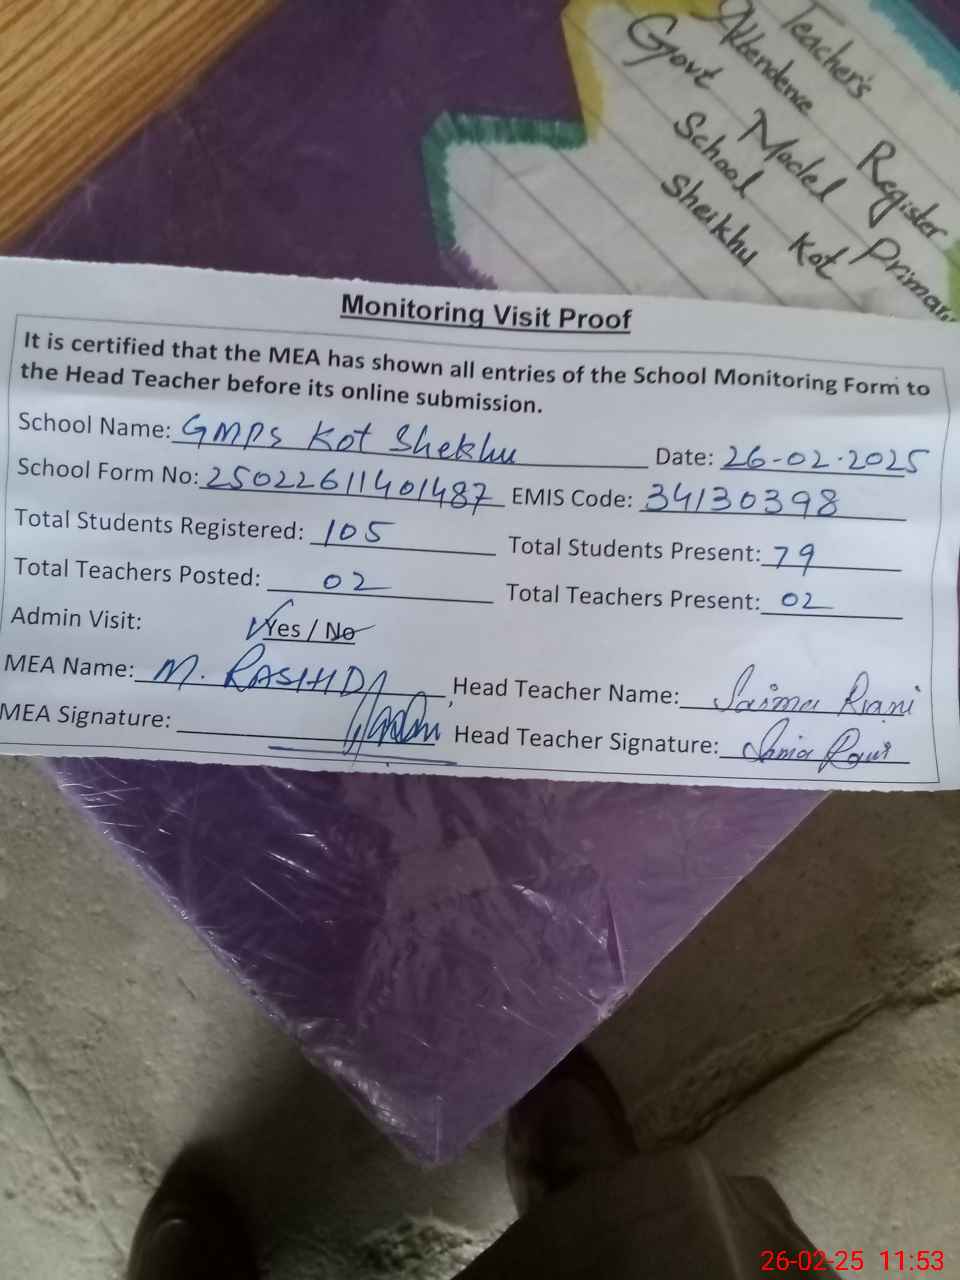 Teacher's
Attendence Register
Govt Model Primary
School Kot
Sheikhu
Monitoring Visit Proof
It is certified that the MEA has shown all entries of the School Monitoring Form to
the Head Teacher before its online submission.
School Name: GMPS Kot Shekhu Date: 26-02-2025
School Form No: 25022611401487 EMIS Code: 34130398
Total Students Registered: 105 Total Students Present: 79
Total Teachers Posted: 02 Total Teachers Present: 02
Admin Visit: Yes / No
MEA Name: M. RASHID Head Teacher Name: Saima Rani
MEA Signature: Head Teacher Signature: Saima Rani
26-02-25 11:53